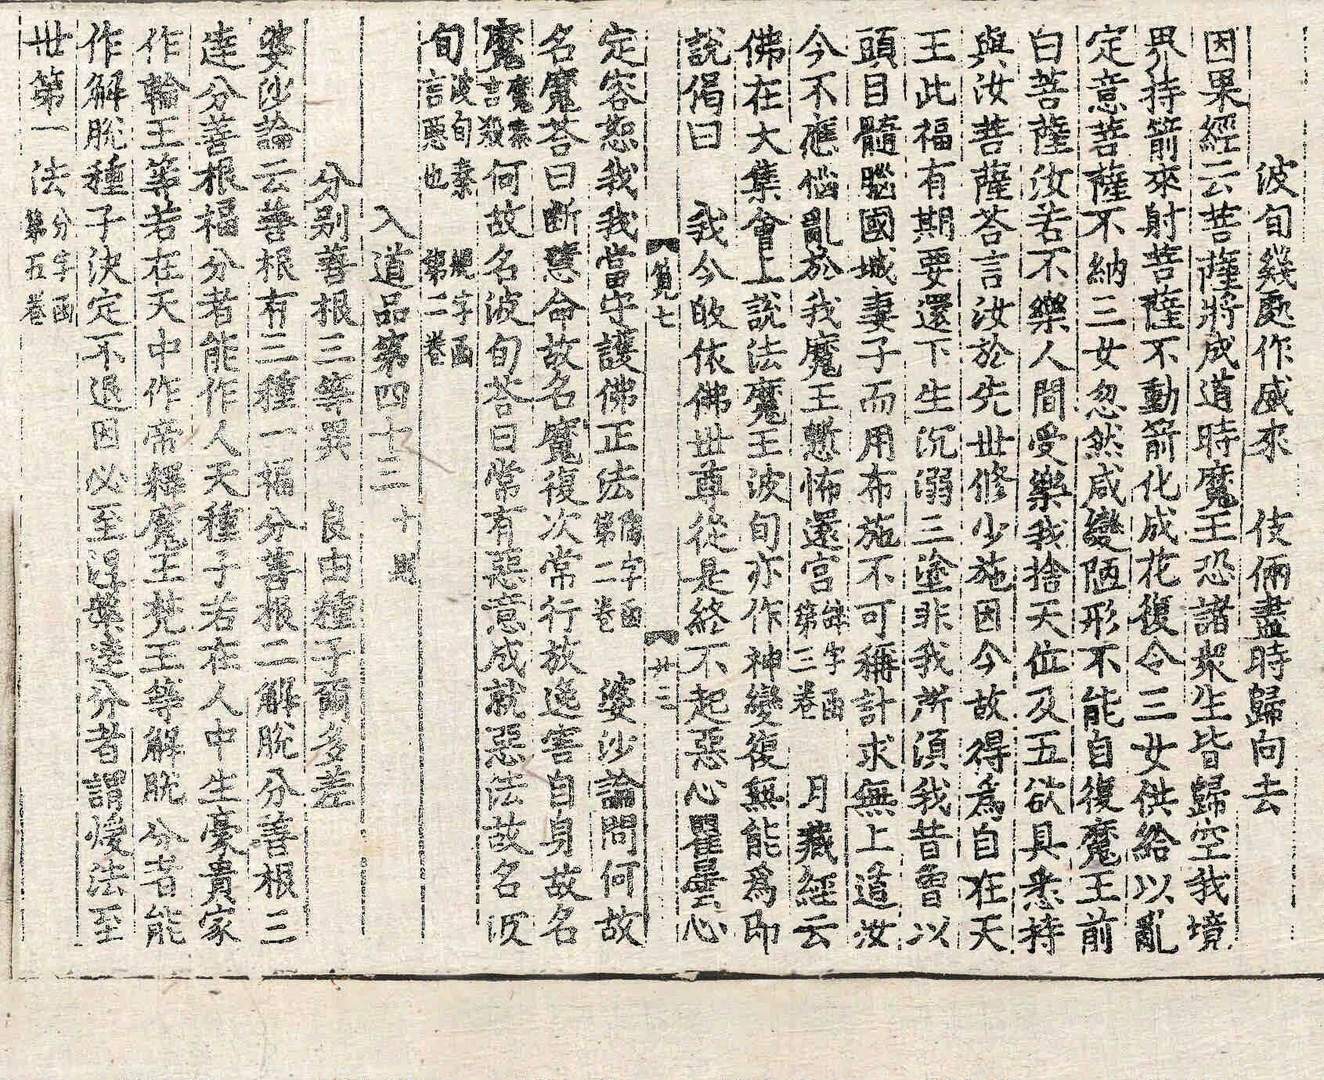 波旬幾處作威來　伎倆盡時歸向去
因果經云菩薩將成道時魔王恐諸衆生皆歸空我境
界持箭來射菩薩不動箭化成花復令三女供給以亂
定意菩薩不納三女忽然咸變陋形不能自復魔王前
白菩薩汝若不樂人間受樂我捨天位及五欲具悉持
與汝菩薩荅言汝於先世修少施因今故得爲自在天
王此福有期要還下生沉溺三塗非我所須我昔曾以
頭目髓腦國城妻子而用布施不可稱計求無上道汝
今不應惱亂於我魔王慙怖還宮
第三卷　月藏經云
佛在大集會上說法魔王波旬亦作神變復無能爲即
說偈曰　我今㱕依佛世尊從是終不起惡心瞿曇心
【覓七　【廿三
定容恕我我當守護佛正法
字函第二卷　婆沙論問何故
名魔荅曰斷慧命故名魔復次常行放逸害自身故名
魔
言殺
何故名波旬荅曰常有惡意成就惡法故名波
旬
波旬秦言惡也
字函第二卷
入道品第四十二
十則
分別善根三等異　良由種子爾多差
婆沙論云善根有三種一福分善根二解脫分善根三
達分善根福分者能作人天種子若在人中生豪貴家
作輪王等若在天中作帝釋魔王梵王等解脫分者能
作解脫種子決定不退因必至涅槃達分者謂煖法至
世第一法
分字函第五卷